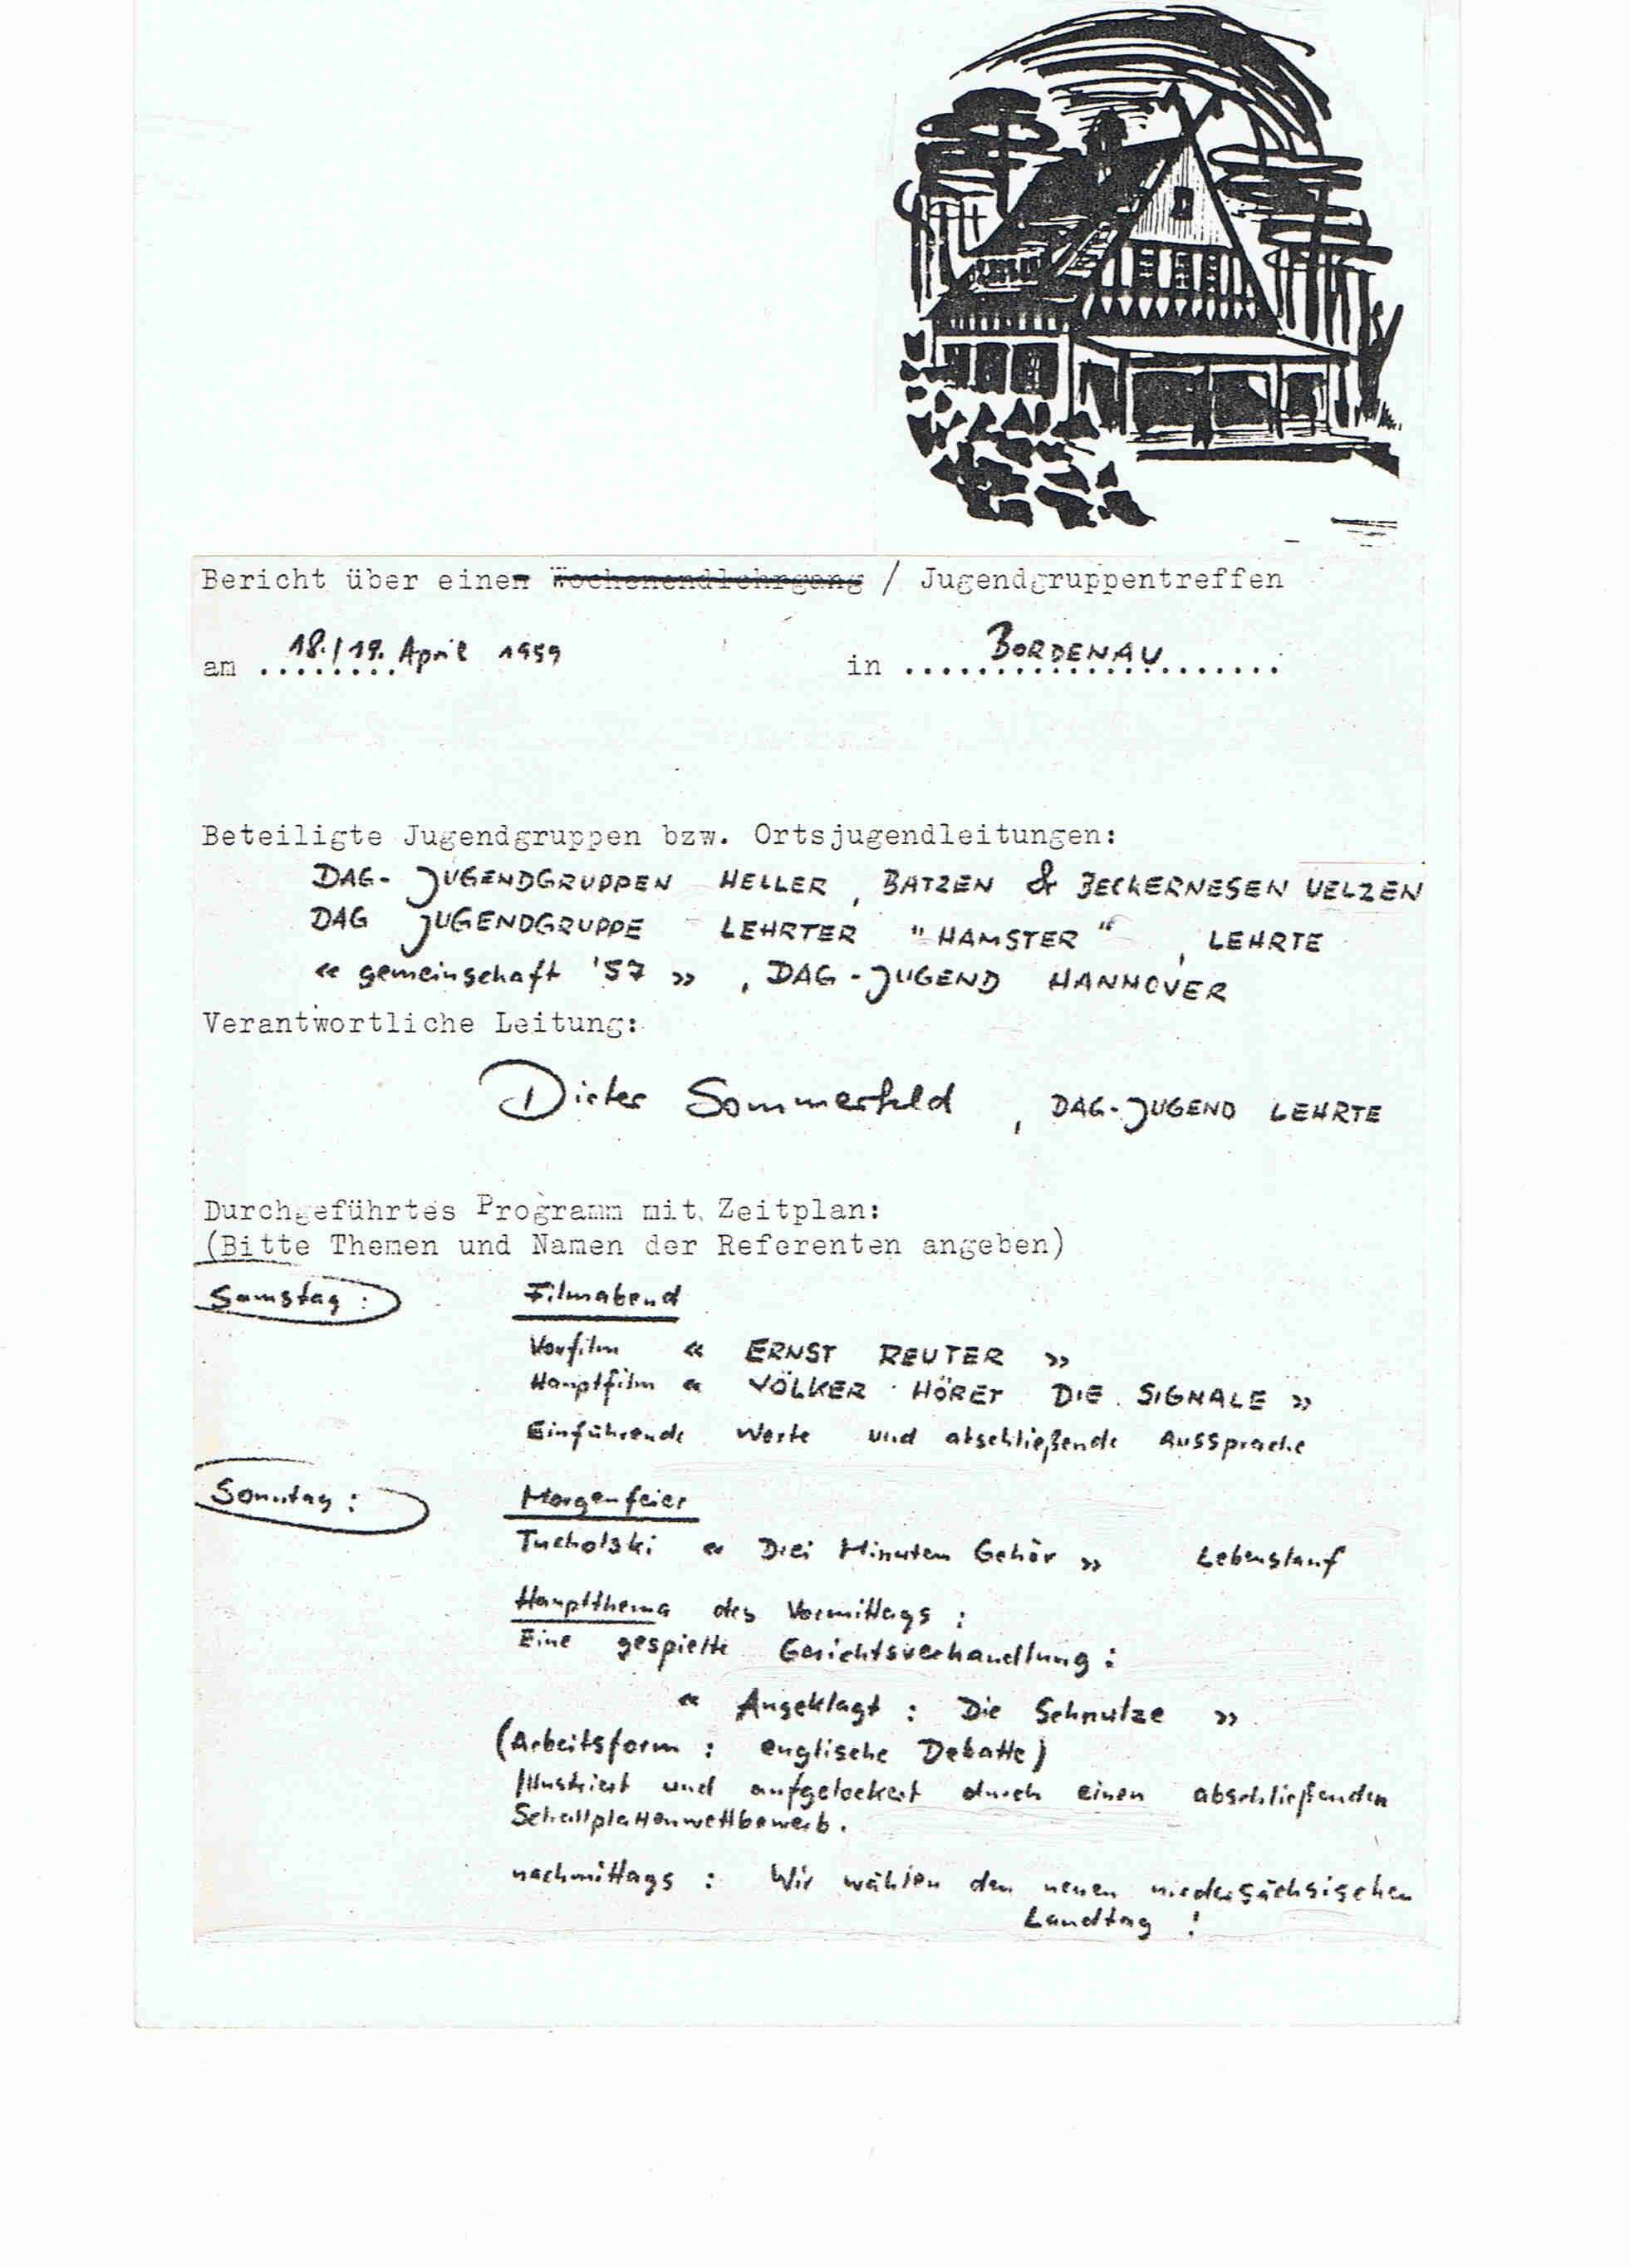 Bericht über einen Wochenendlehrgang / Jugendgruppentreffen
am ........ 18./19. April 1959 in ..................... BORDENAU
Beteiligte Jugendgruppen bzw. Ortsjugendleitungen:
DAG-JUGENDGRUPPEN HELLER, BATZEN & BECKERNESEN UELZEN
DAG JUGENDGRUPPE LEHRTER "HAMSTER", LEHRTE
« gemeinschaft '57 », DAG-JUGEND HANNOVER
Verantwortliche Leitung:
Dieter Sommerfeld, DAG-JUGEND LEHRTE
Durchgeführtes Programm mit Zeitplan:
(Bitte Themen und Namen der Referenten angeben)
Samstag: Filmabend
Vorfilm « ERNST REUTER »
Hauptfilm « VÖLKER HÖRET DIE SIGNALE »
Einführende Worte und abschließende Aussprache
Sonntag: Morgenfeier
Tucholski « Drei Minuten Gehör » Lebenslauf
Hauptthema des Vormittags:
Eine gespielte Gerichtsverhandlung:
« Angeklagt: Die Schnulze »
(Arbeitsform: englische Debatte)
Illustriert und aufgelockert durch einen abschließenden
Schallplattenwettbewerb.
nachmittags: Wir wählen den neuen niedersächsischen
Landtag!